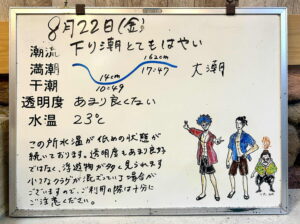 8月22日(金)
潮流 下り潮とてもはやい
満潮 162cm 17:47 大潮
干潮 14cm 10:49
透明度 あまり良くない
水温 23℃
この所水温が低めの状態が
続いております。透明度もあまり良好
ではなく、浮遊物が多く見られます
小さなクラゲが混ざっている場合が
ございますので、ご利用の際は十分に
ご注意ください。